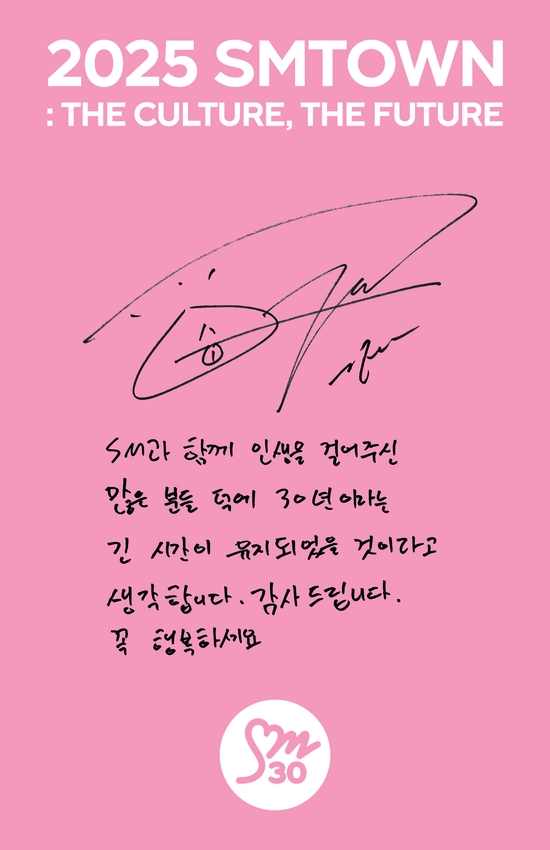 2025 SMTOWN
: THE CULTURE, THE FUTURE
SM과 함께 인생을 걸어주신
많은 분들 덕에 30년이라는
긴 시간이 유지되었을 것이라고
생각합니다. 감사드립니다.
꼭 행복하세요
Sm
30